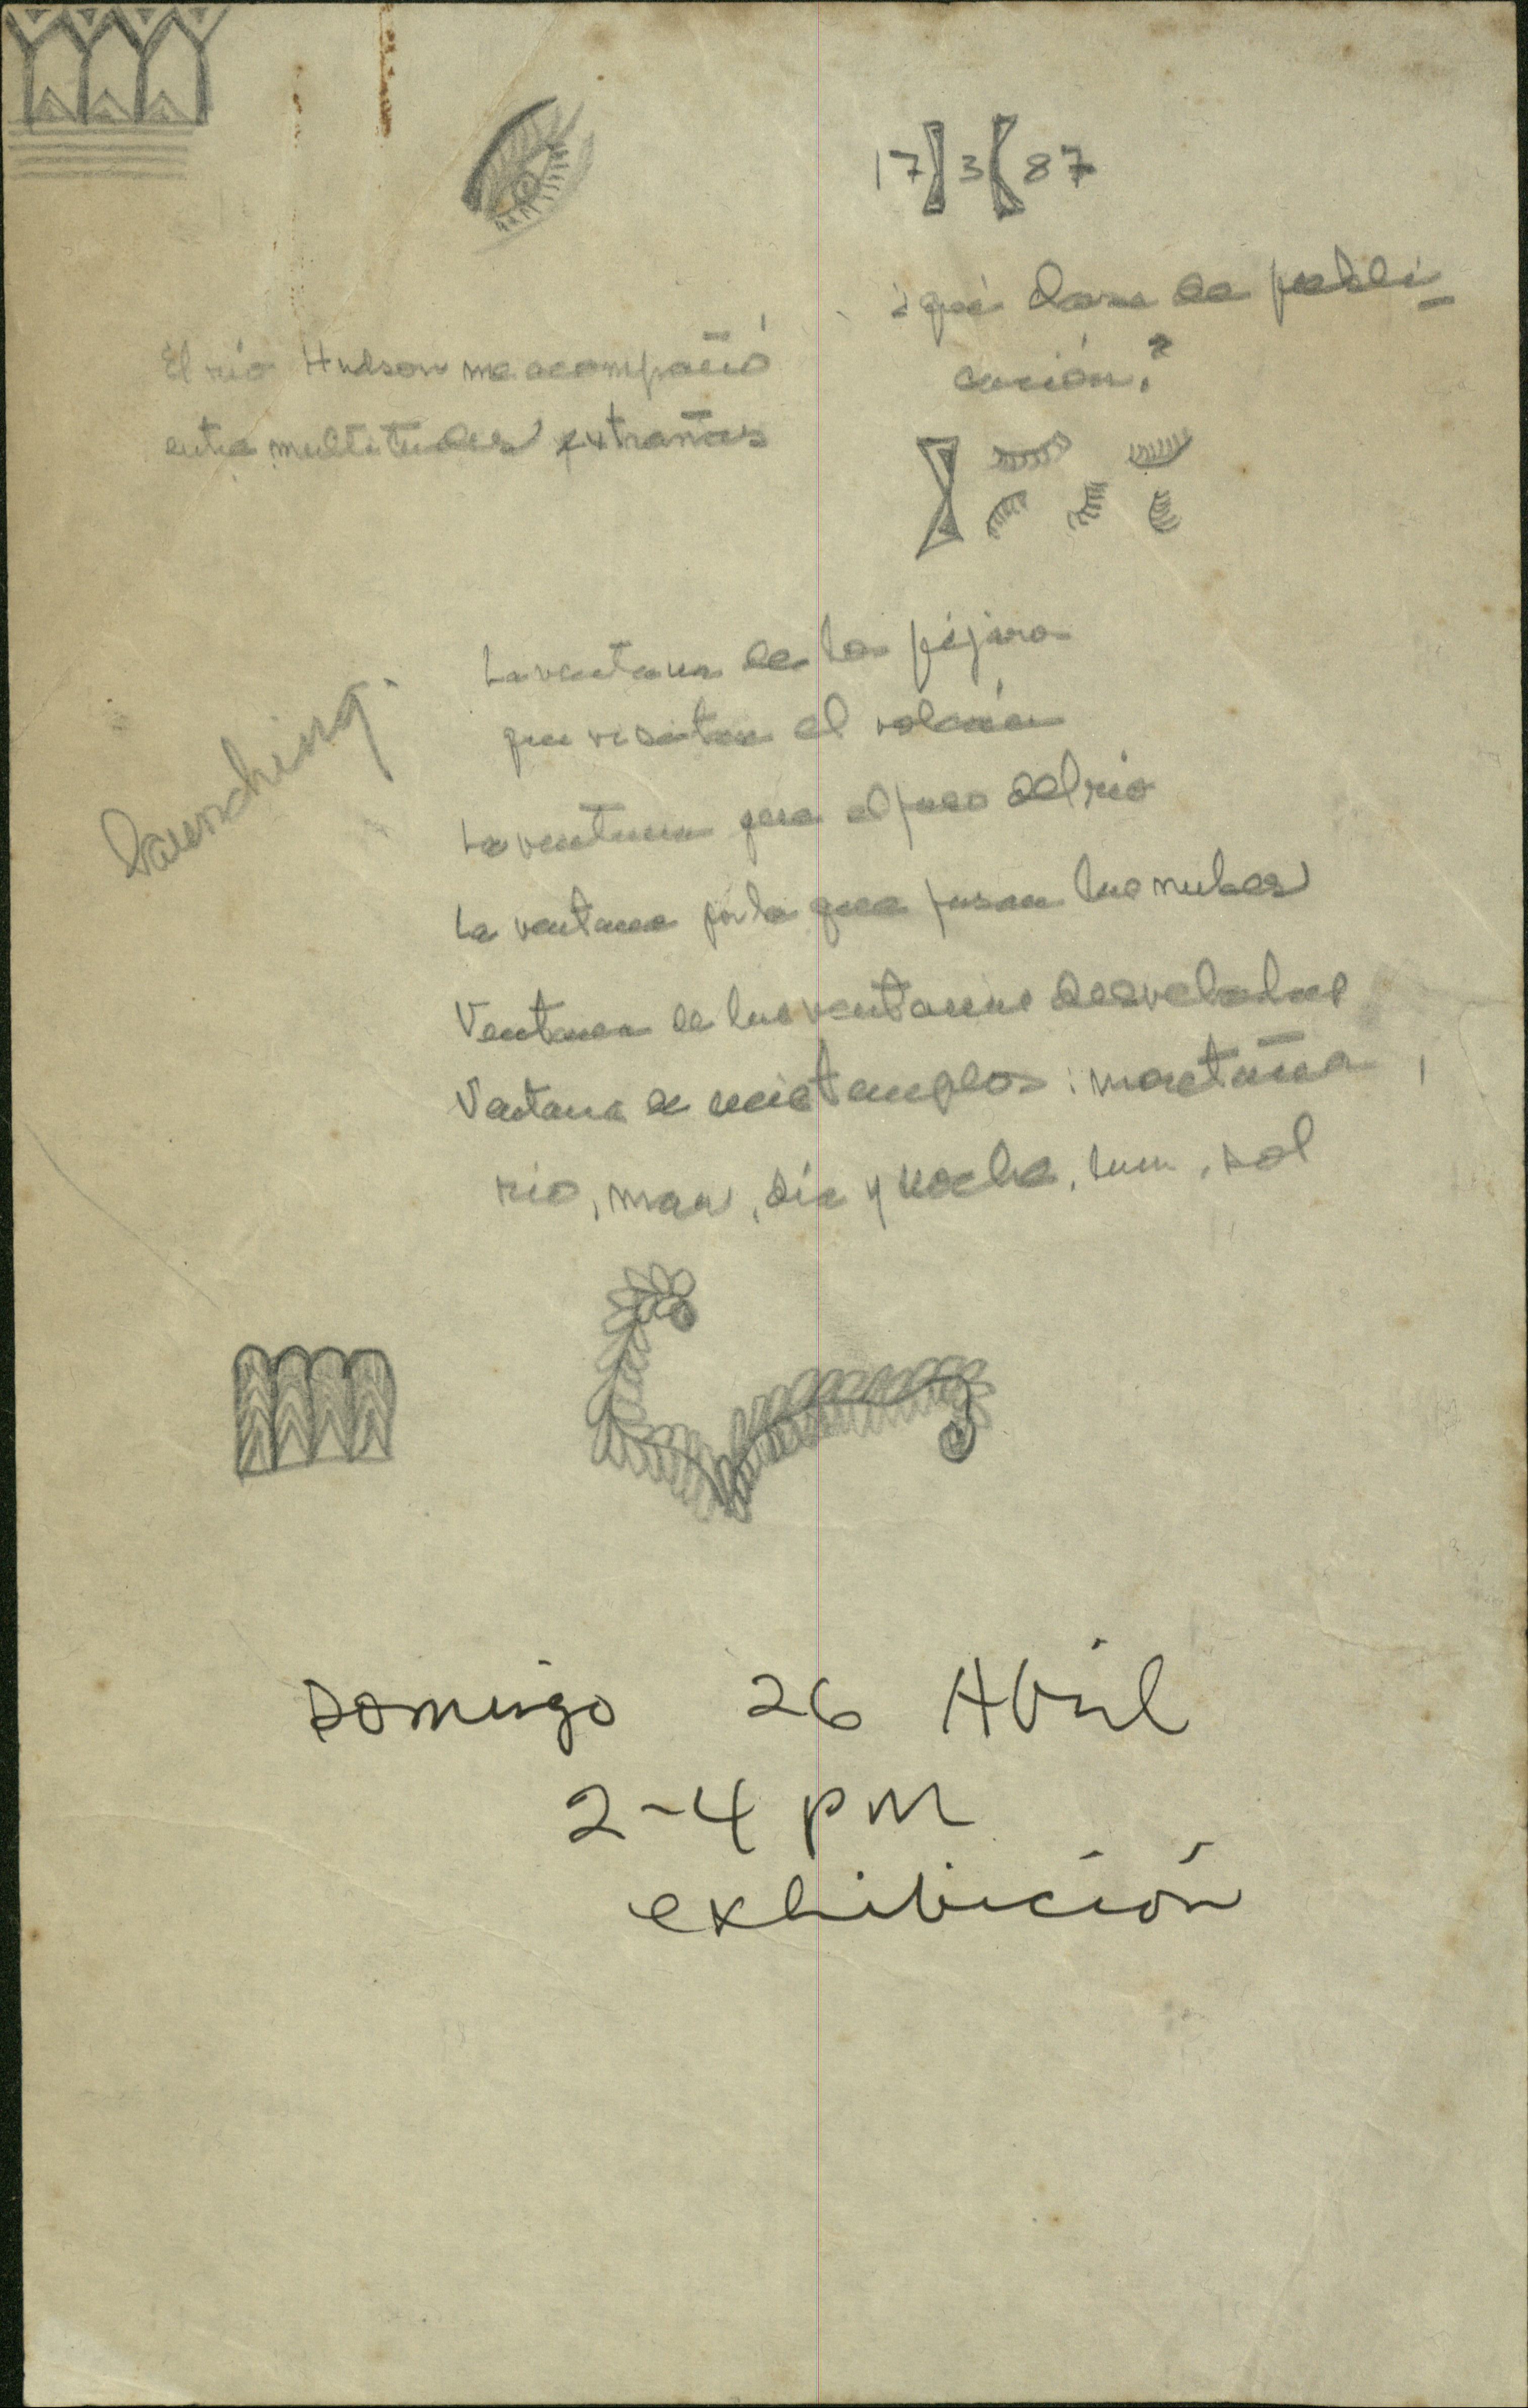 17 3 87
¿qué clase de publi-
cación?
El río Hudson me acompañó
entre multitudes extrañas
Launching.
La ventana de los pájaros
que visitan el volcán
La ventana para el paso del río
La ventana por la que pasan las nubes
Ventana de las ventanas desveladas
Ventana de mis templos: montaña,
río, mar, día y noche, luna, sol
Domingo 26 Abril
2-4 pm
exhibición